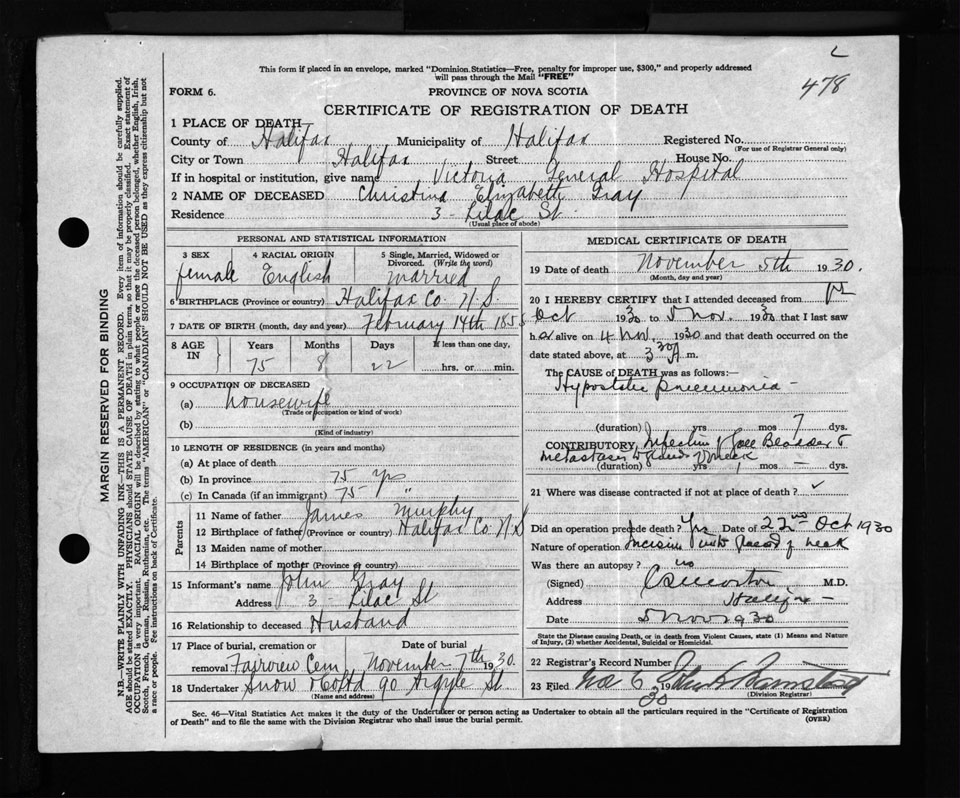 This form if placed in an envelope, marked "Dominion Statistics—Free, penalty for improper use, $300," and properly addressed
will pass through the Mail "FREE"
478
FORM 6.
PROVINCE OF NOVA SCOTIA
CERTIFICATE OF REGISTRATION OF DEATH
1 PLACE OF DEATH
County of Halifax Municipality of Halifax Registered No.
(For use of Registrar General only)
City or Town Halifax Street House No.
If in hospital or institution, give name Victoria General Hospital
2 NAME OF DECEASED Christina Elizabeth Gray
Residence 3 - Lilac St
(Usual place of abode)
PERSONAL AND STATISTICAL INFORMATION
3 SEX 4 RACIAL ORIGIN 5 Single, Married, Widowed or
Divorced. (Write the word)
female English married
6 BIRTHPLACE (Province or country) Halifax Co. N.S.
7 DATE OF BIRTH (month, day and year) February 14th 1855
8 AGE IN Years Months Days If less than one day,
75 8 22 hrs. or min.
9 OCCUPATION OF DECEASED
(a) housewife
(Trade or occupation or kind of work)
(b)
(Kind of industry)
10 LENGTH OF RESIDENCE (in years and months)
(a) At place of death
(b) In province 75 yrs
(c) In Canada (if an immigrant) 75 - "
Parents
11 Name of father James Murphy
12 Birthplace of father (Province or country) Halifax Co N.S
13 Maiden name of mother
14 Birthplace of mother (Province or country)
15 Informant's name John Gray
Address 3 - Lilac St
16 Relationship to deceased Husband
17 Place of burial, cremation or removal Date of burial
Fairview Cem November 7th 1930.
18 Undertaker Snow & Co Ltd 90 Argyle St.
(Name and address)
MEDICAL CERTIFICATE OF DEATH
19 Date of death November 5th 1930.
(Month, day and year)
20 I HEREBY CERTIFY that I attended deceased from 1st
Oct 1930 to 5 Nov. 1930 that I last saw
her alive on 4 Nov. 1930 and that death occurred on the
date stated above, at 3 30 A m.
The CAUSE of DEATH was as follows:—
Hypostatic pneumonia -
(duration) yrs mos 7 dys.
CONTRIBUTORY, Infection of Gall Bladder &
metastases to glands of neck
(duration) yrs 1 mos — dys.
21 Where was disease contracted if not at place of death?
Did an operation precede death? Yes Date of 22nd Oct 1930
Nature of operation Incision into of neck
Was there an autopsy? no
(Signed) M.D.
Address Halifax -
Date 5 Nov 1930
State the Disease causing Death, or in death from Violent Causes, state (1) Means and Nature
of Injury, (2) whether Accidental, Suicidal or Homicidal.
22 Registrar's Record Number
23 Filed Nov 6 1930 John
(Division Registrar)
Sec. 46—Vital Statistics Act makes it the duty of the Undertaker or person acting as Undertaker to obtain all the particulars required in the "Certificate of Registration
of Death" and to file the same with the Division Registrar who shall issue the burial permit.
(OVER)
MARGIN RESERVED FOR BINDING
N.B.—WRITE PLAINLY WITH UNFADING INK—THIS IS A PERMANENT RECORD. Every item of information should be carefully supplied.
AGE should be stated EXACTLY. PHYSICIANS should STATE CAUSE OF DEATH in plain terms, so that it may be properly classified. Exact statement of
OCCUPATION is very important. RACIAL ORIGIN will be described by stating to what people or race the deceased person belonged, whether English, Irish,
Scotch, French, German, Russian, Ruthenian, etc. The terms "AMERICAN" or "CANADIAN" SHOULD NOT BE USED as they express citizenship but not
a race or people. See instructions on back of Certificate.